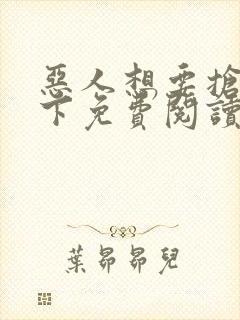 惡人想要搶
下免費閱讀
葉昴昴兒